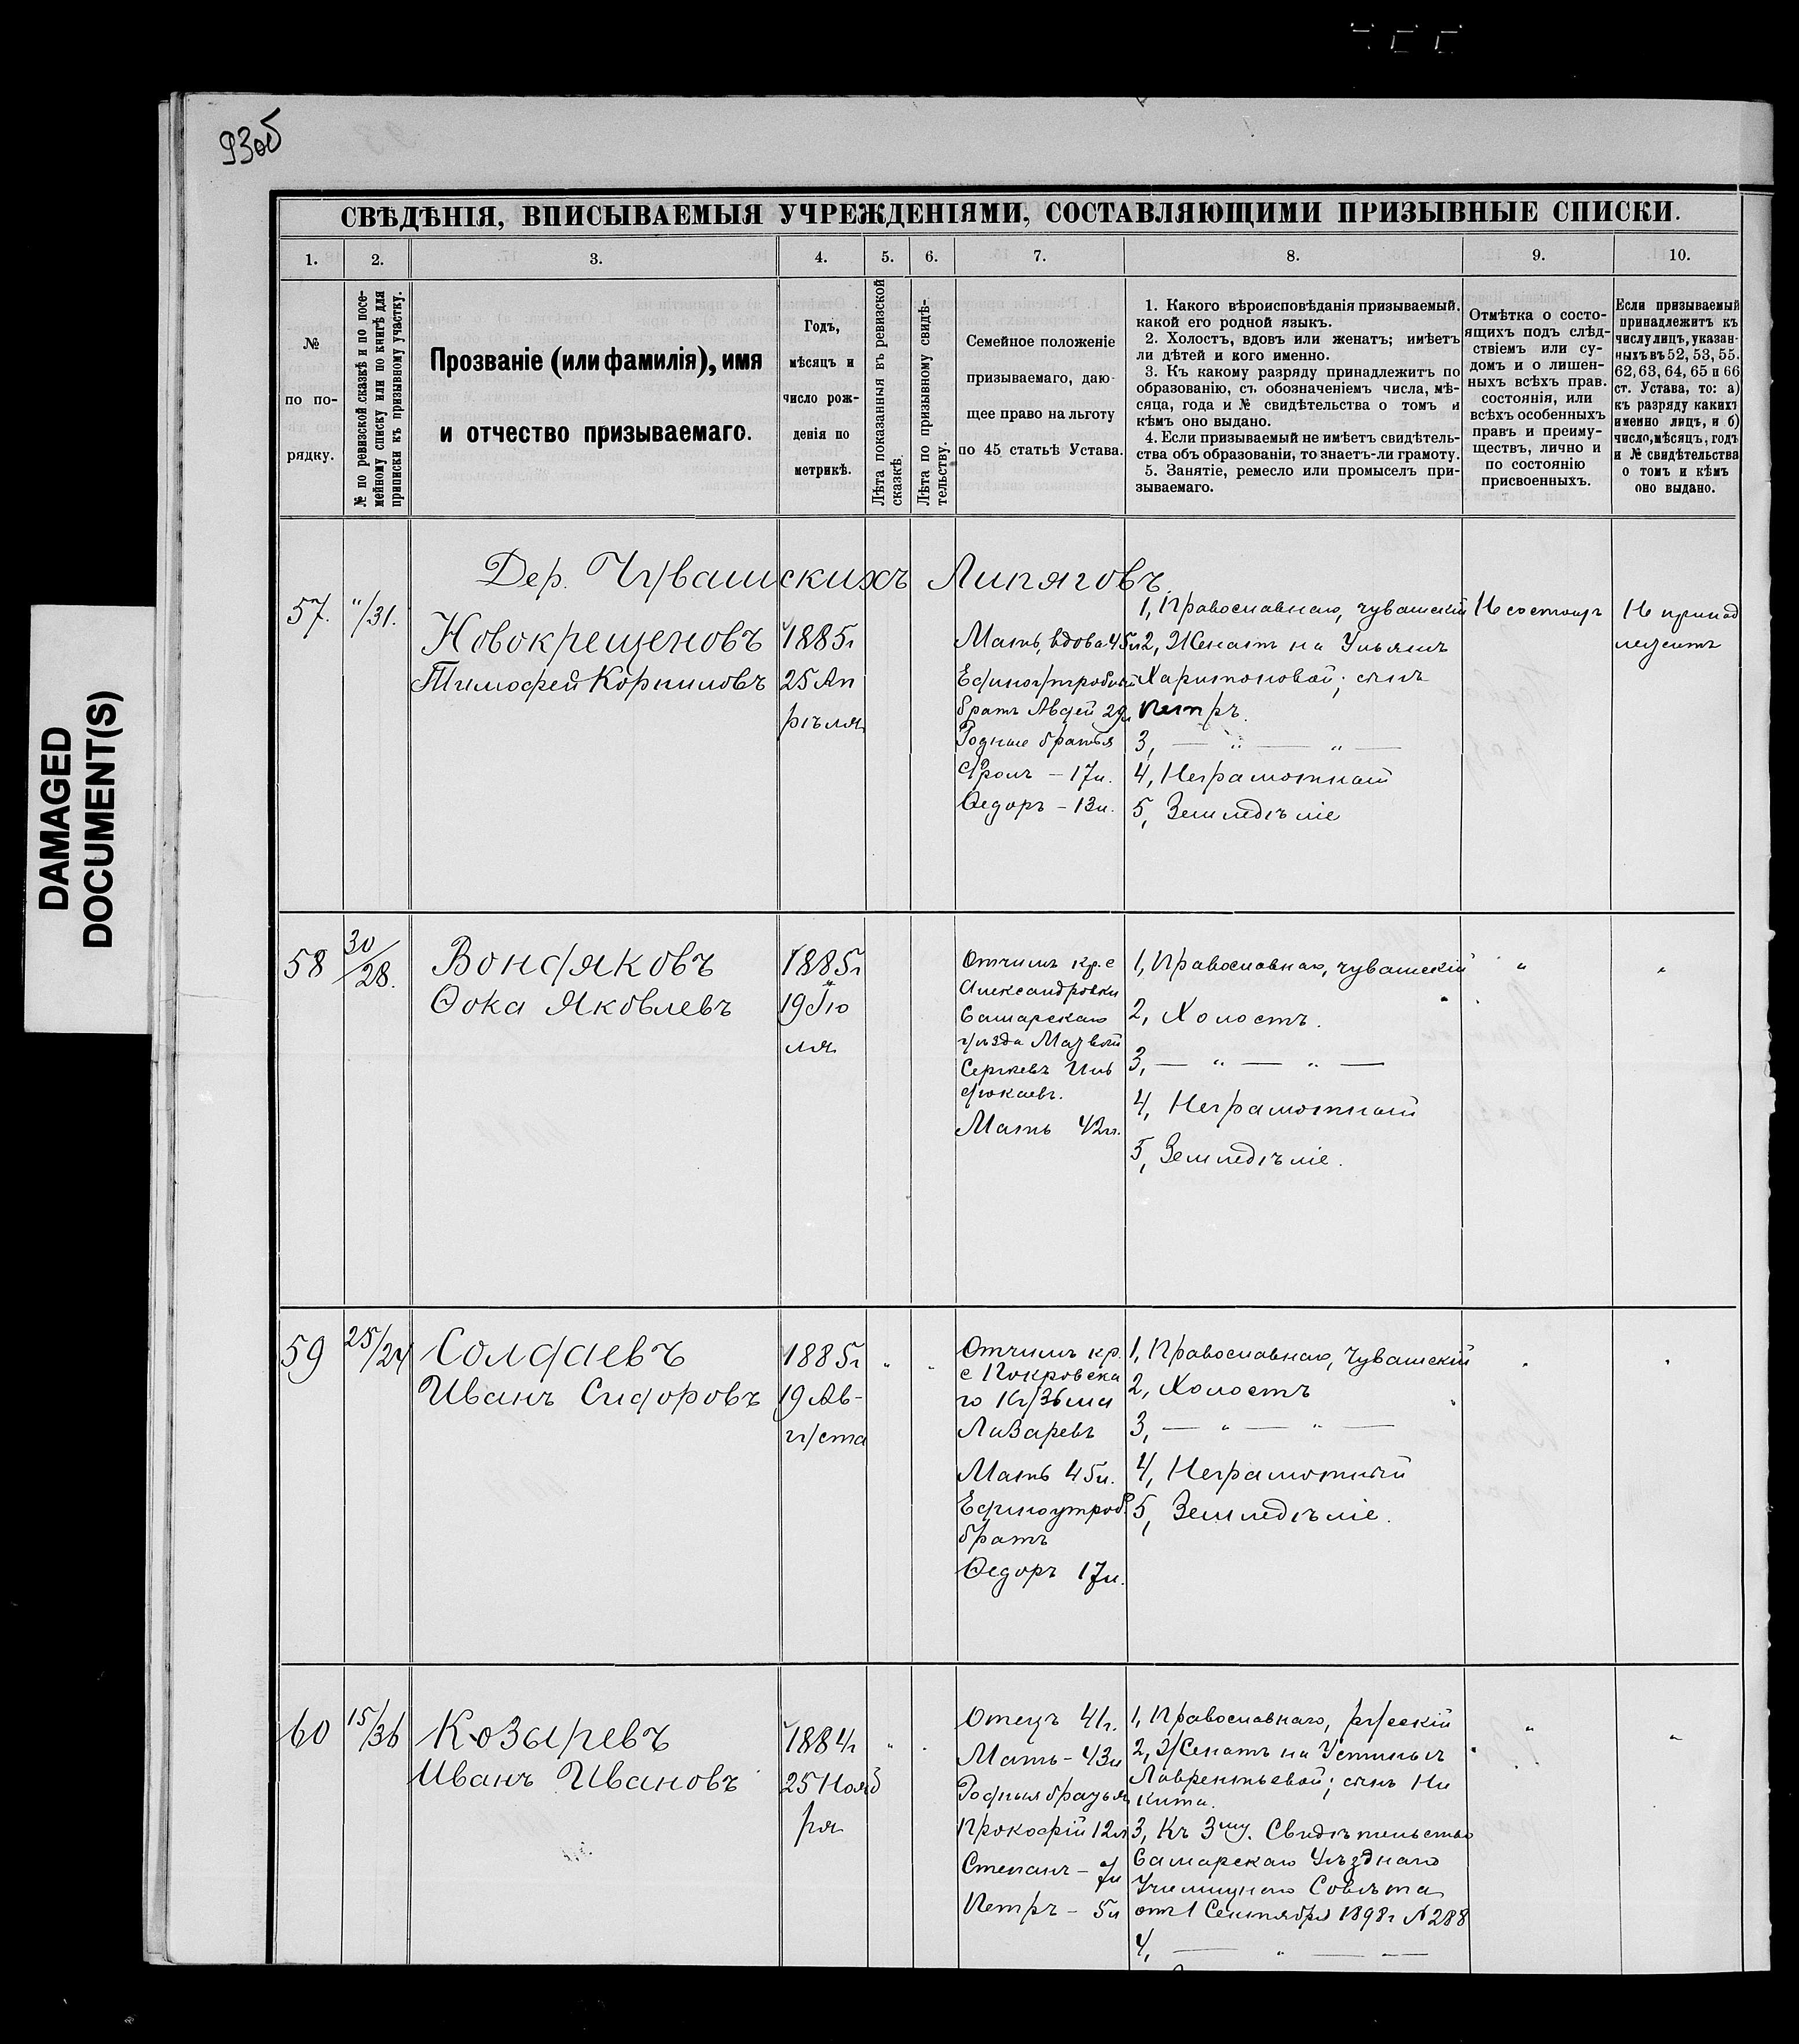 93об
DAMAGED
DOCUMENT(S)
СВѢДѢНІЯ, ВПИСЫВАЕМЫЯ УЧРЕЖДЕНІЯМИ, СОСТАВЛЯЮЩИМИ ПРИЗЫВНЫЕ СПИСКИ.
1. 2. 3. 4. 5. 6. 7. 8. 9. 10.
№
по по-
рядку.
№ по ревизской сказкѣ и по посе-
мейному списку или по книгѣ для
приписки къ призывному участку.
Прозваніе (или фамилія), имя
и отчество призываемаго.
Годъ,
мѣсяцъ и
число рож-
денія по
метрикѣ.
Лѣта показанныя въ ревизской
сказкѣ.
Лѣта по призывному свидѣ-
тельству.
Семейное положеніе
призываемаго, даю-
щее право на льготу
по 45 статьѣ Устава.
1. Какого вѣроисповѣданія призываемый,
какой его родной языкъ.
2. Холостъ, вдовъ или женатъ; имѣетъ
ли дѣтей и кого именно.
3. Къ какому разряду принадлежитъ по
образованію, съ обозначеніемъ числа, мѣ-
сяца, года и № свидѣтельства о томъ и
кѣмъ оно выдано.
4. Если призываемый не имѣетъ свидѣтель-
ства объ образованіи, то знаетъ-ли грамоту.
5. Занятіе, ремесло или промыселъ при-
зываемаго.
Отмѣтка о состо-
ящихъ подъ слѣд-
ствіемъ или су-
домъ и о лишен-
ныхъ всѣхъ прав.
состоянія, или
всѣхъ особенныхъ
правъ и преиму-
ществъ, лично и
по состоянію
присвоенныхъ.
Если призываемый
принадлежитъ къ
числу лицъ, указан-
ныхъ въ 52, 53, 55.
62, 63, 64, 65 и 66
ст. Устава, то: а)
къ разряду какихъ
именно лицъ, и б)
число, мѣсяцъ, годъ
и № свидѣтельства
о томъ и кѣмъ
оно выдано.
Дер. Чувашскихъ Липяговъ
57.
"/31.
Новокрещеновъ
Тимофей Корниловъ
1885г
25 Ап
рѣля
Мать, вдова 45л
Единоутробный
братъ Авдей 29л
Родные братья
Фролъ - 17л.
Ѳедоръ - 13л.
1, Православнаго, чувашскій
2, Женатъ на Ульянѣ
Харитоновой; сынъ
Петръ.
3, — " — " —
4, Неграмотный
5, Земледѣліе
Не состоитъ
Не принад
лежитъ
58
30/28.
Вондяковъ
Ѳока Яковлевъ
1885г
19 Ію
ля
Отчимъ кр. с
Александровки
Самарскаго
уѣзда
Сергѣевъ
Мать 42л.
1, Православнаго, чувашскій
2, Холостъ.
3, — " — " —
4, Неграмотный
5, Земледѣліе.
"
"
59
25/24
Солдаевъ
Иванъ Сидоровъ
1885г
19 Ав-
густа
"
"
Отчимъ кр.
с Покровска
го Кузьма
Лазаревъ
Мать 45л.
Единоутроб.
братъ
Ѳедоръ 17л.
1, Православнаго, Чувашскій
2, Холостъ
3, — " — " —
4, Неграмотный
5, Земледѣліе.
"
"
60
15/36
Козыревъ
Иванъ Ивановъ
1884г
25 Нояб
ря
"
"
Отецъ 41г.
Мать - 43л
Родныя братья
Прокофій 12л
Степанъ - 7л
Петръ - 5л
1, Православнаго, русскій
2, Женатъ на Устиньѣ
Лаврентьевой; сынъ Ни
кита.
3, Къ 3му. Свидѣтельство
Самарскаго Уѣзднаго
Училищнаго Совѣта
отъ 1 Сентября 1898г № 288
4, — " — —
"
"